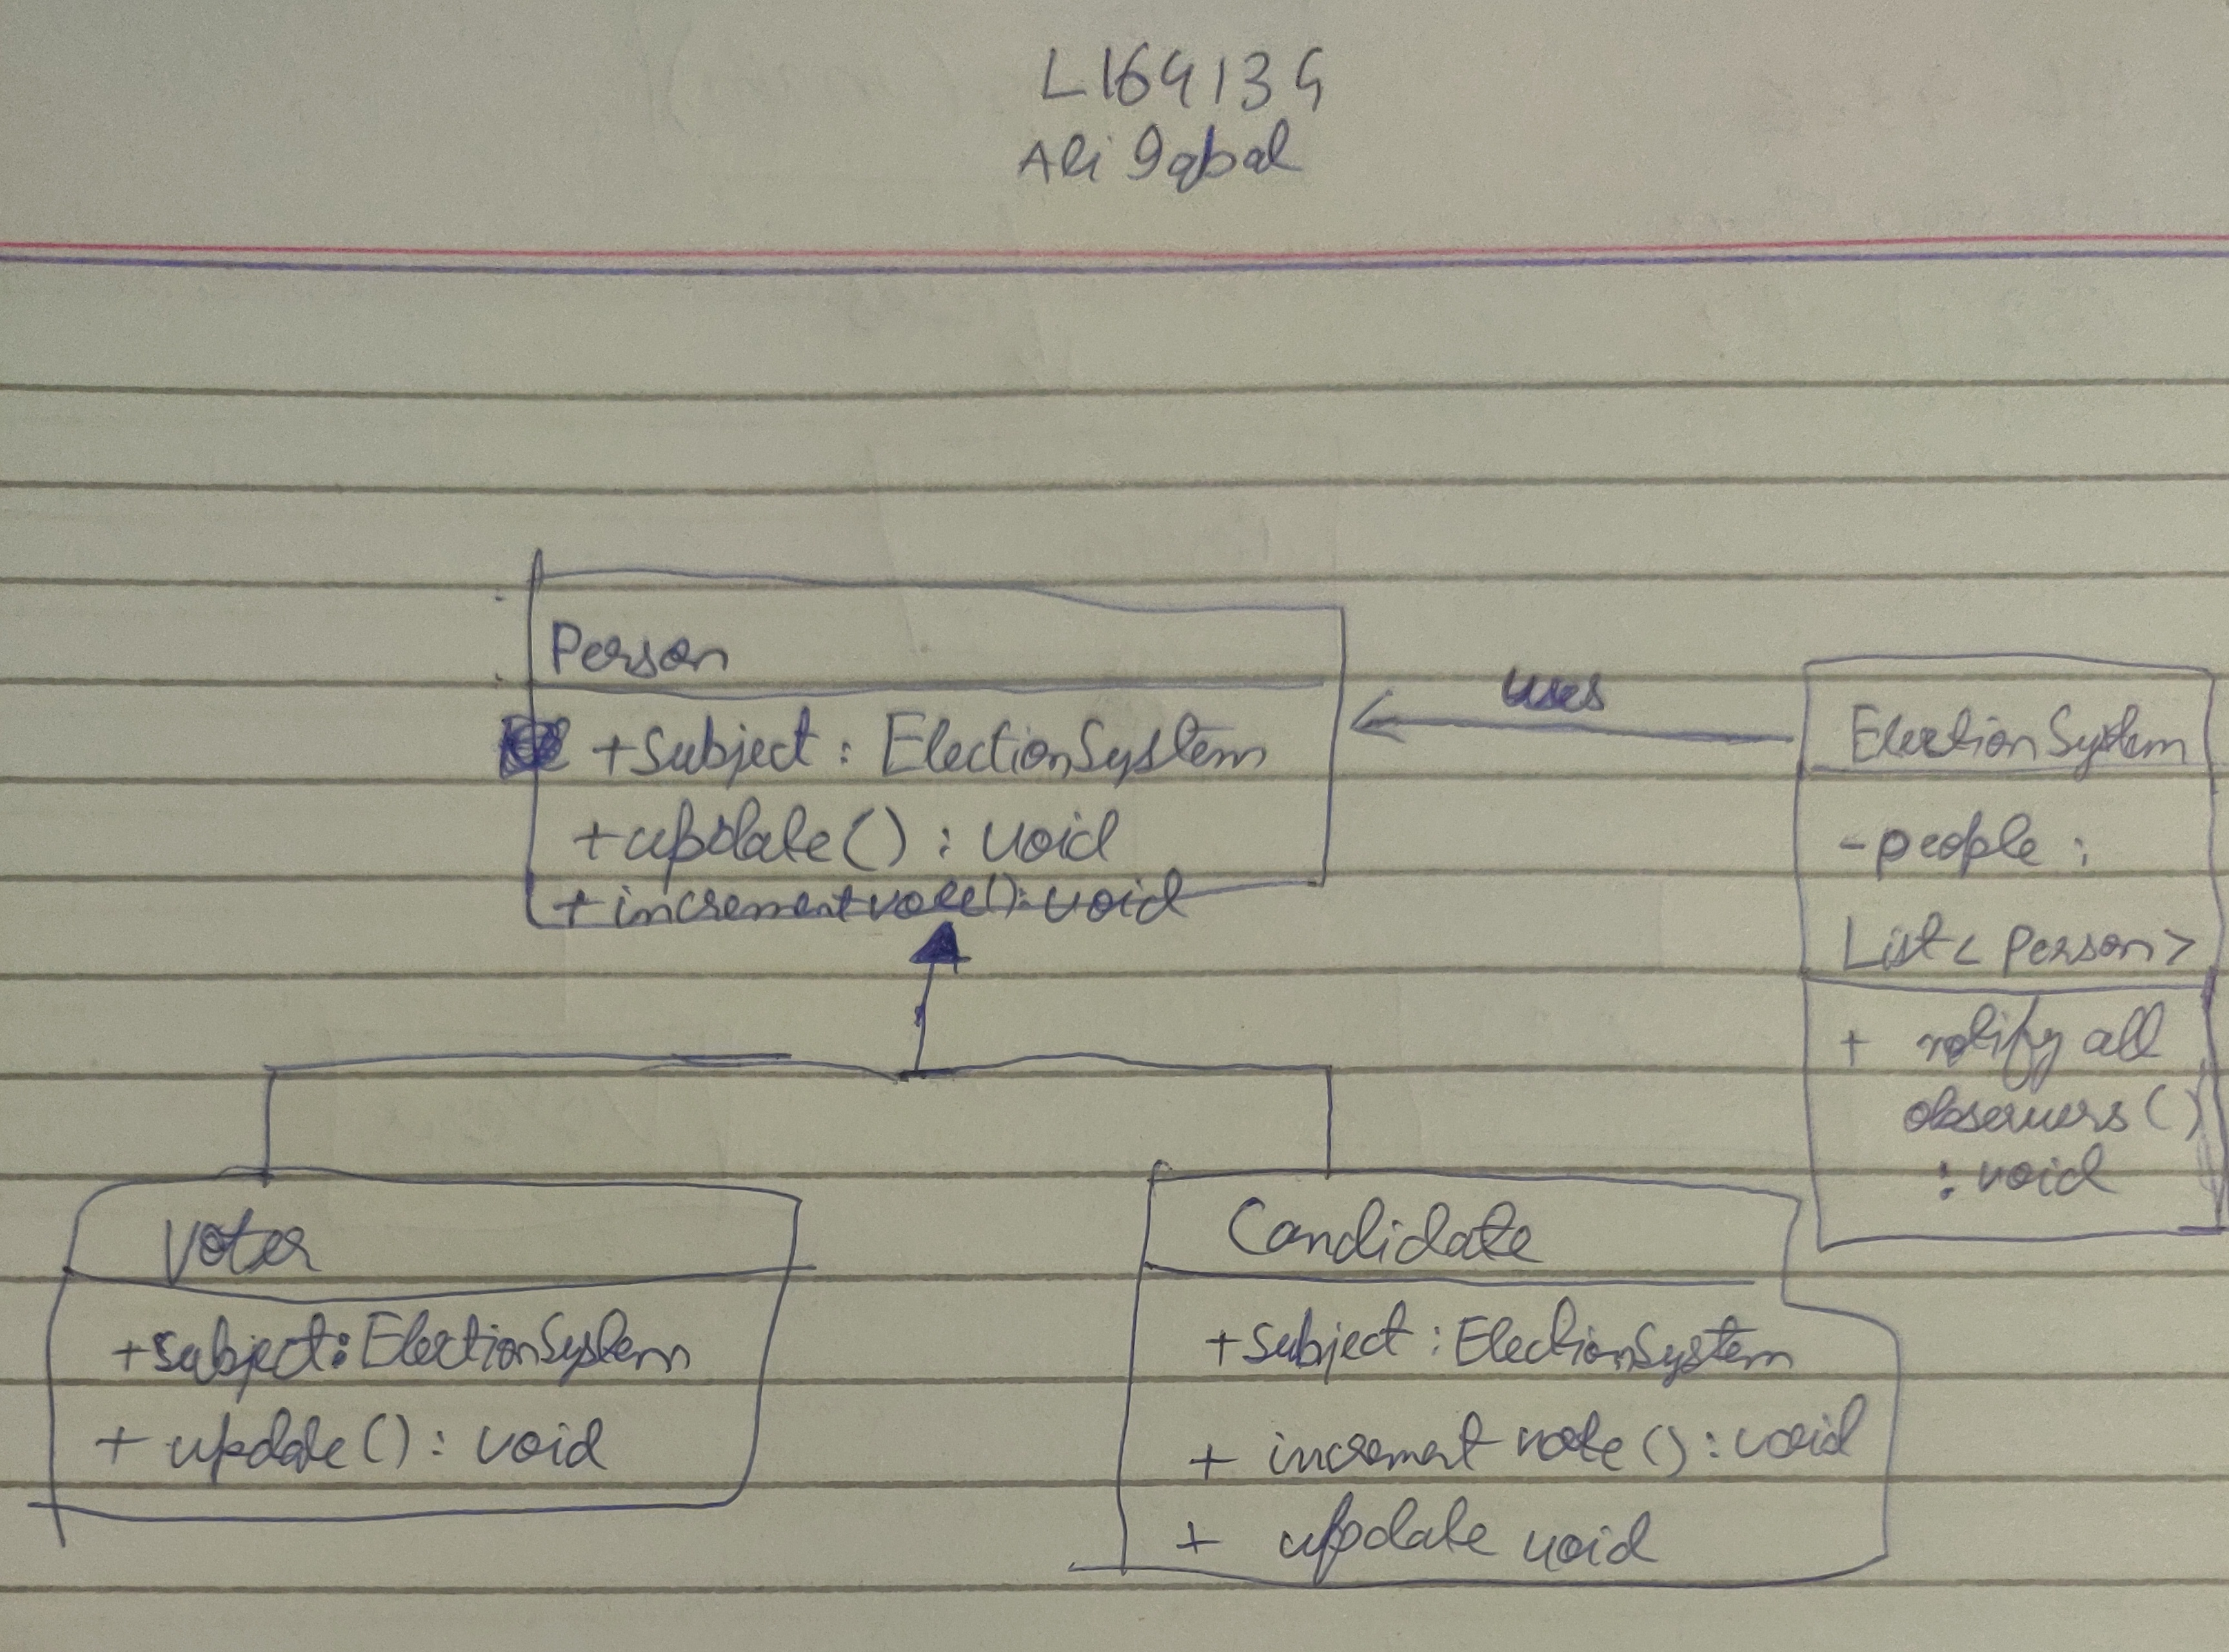 L164134
Ali Iqbal
Person
+Subject : ElectionSystem
+update() : void
+incrementvote():void
uses
ElectionSystem
-people :
List< Person>
+ notify all
observers()
: void
Voter
+Subject:ElectionSystem
+ update() : void
Candidate
+Subject : ElectionSystem
+ increment vote () : void
+ update void